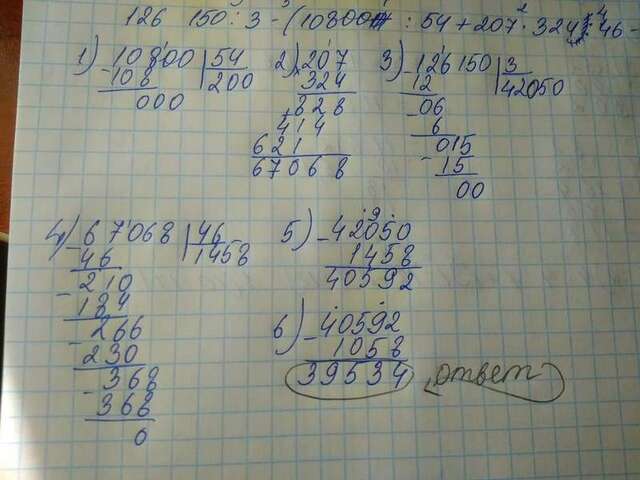 126 150 : 3 - (10800 : 54 + 207 · 324) : 46 -
1) 10800 | 54
- 108 | 200
000
2) 207
324
828
414
621
67068
3) - 126150 | 3
12 | 42050
- 06
6
- 015
15
00
4) - 67068 | 46
46 | 1458
- 210
184
- 266
230
- 368
368
0
5) - 42050
1458
40592
6) - 40592
1058
39534 ответ